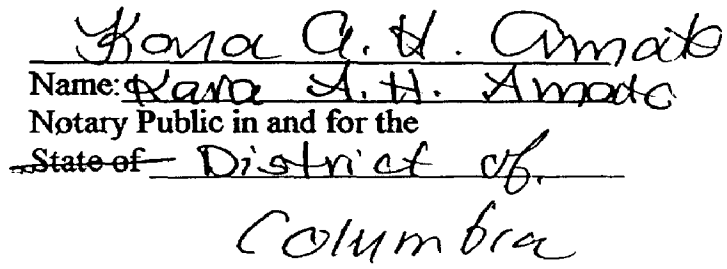 Kara A. H. Amato
Name: Kara A. H. Amato
Notary Public in and for the
State of District of
Columbia